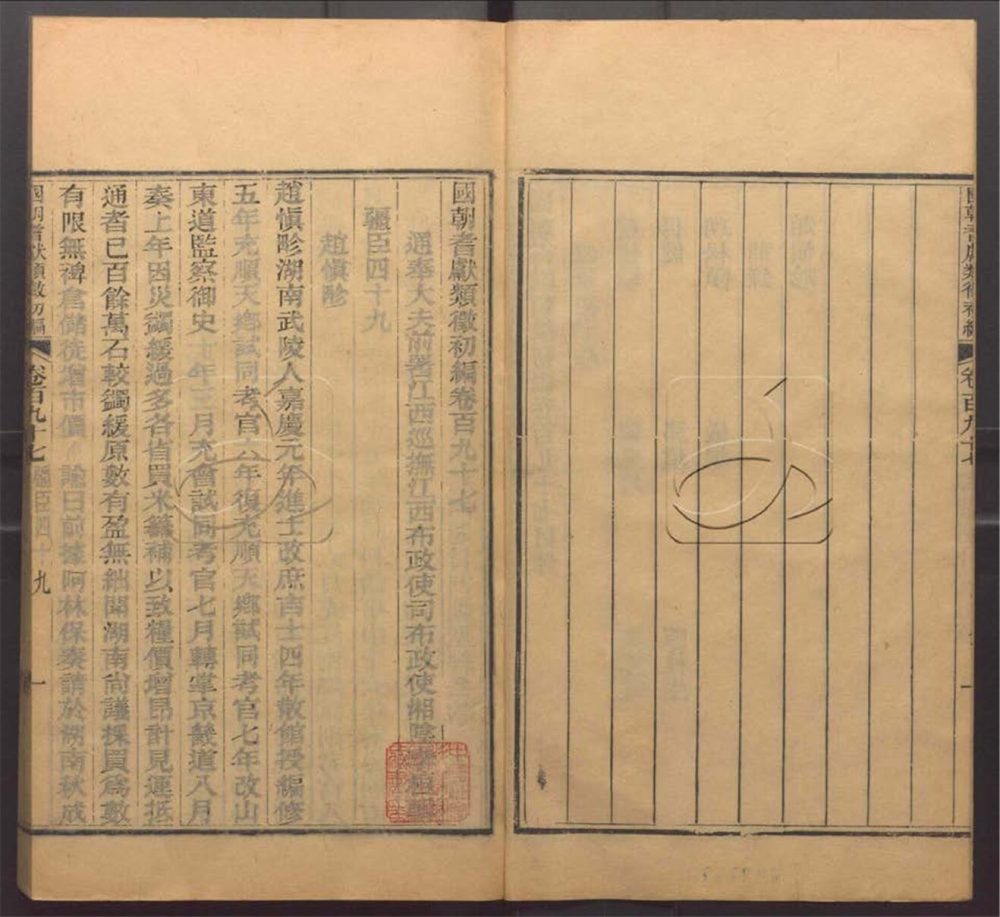 國朝耆獻類徵初編
卷百九十七
一
國朝耆獻類徵初編卷百九十七
通奉大夫前署江西巡撫江西布政使司布政使湘陰李桓
疆臣四十九
趙愼畛
趙愼畛湖南武陵人嘉慶元年進士改庶吉士四年散館授編修
五年充順天鄉試同考官六年復充順天鄉試同考官七年改山
東道監察御史十年三月充會試同考官七月轉掌京畿道八月
奏上年因災蠲緩過多各省買米糴補以致糧價增昂計見運抵
通者已百餘萬石較蠲緩原數有盈無絀聞湖南尙議採買爲數
有限無裨倉儲徒增市價 諭曰前據阿林保奏請於湖南秋成
國朝耆獻類徵初編
卷百九十七
疆臣四十九
一